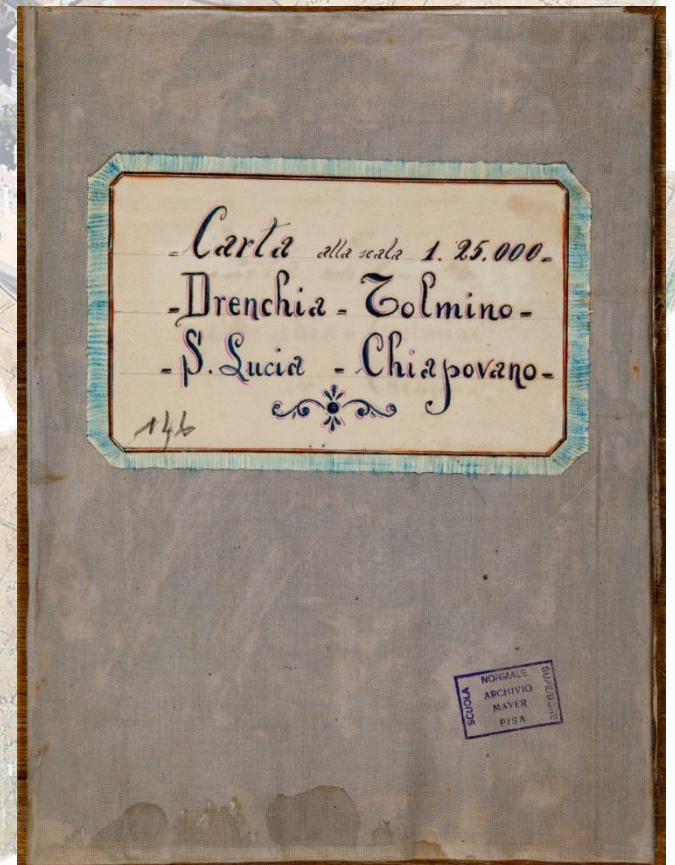 - Carta alla scala 1. 25.000 -
- Drenchia - Tolmino -
- S. Lucia - Chiapovano -
146
SCUOLA NORMALE SUPERIORE
ARCHIVIO
MAYER
PISA